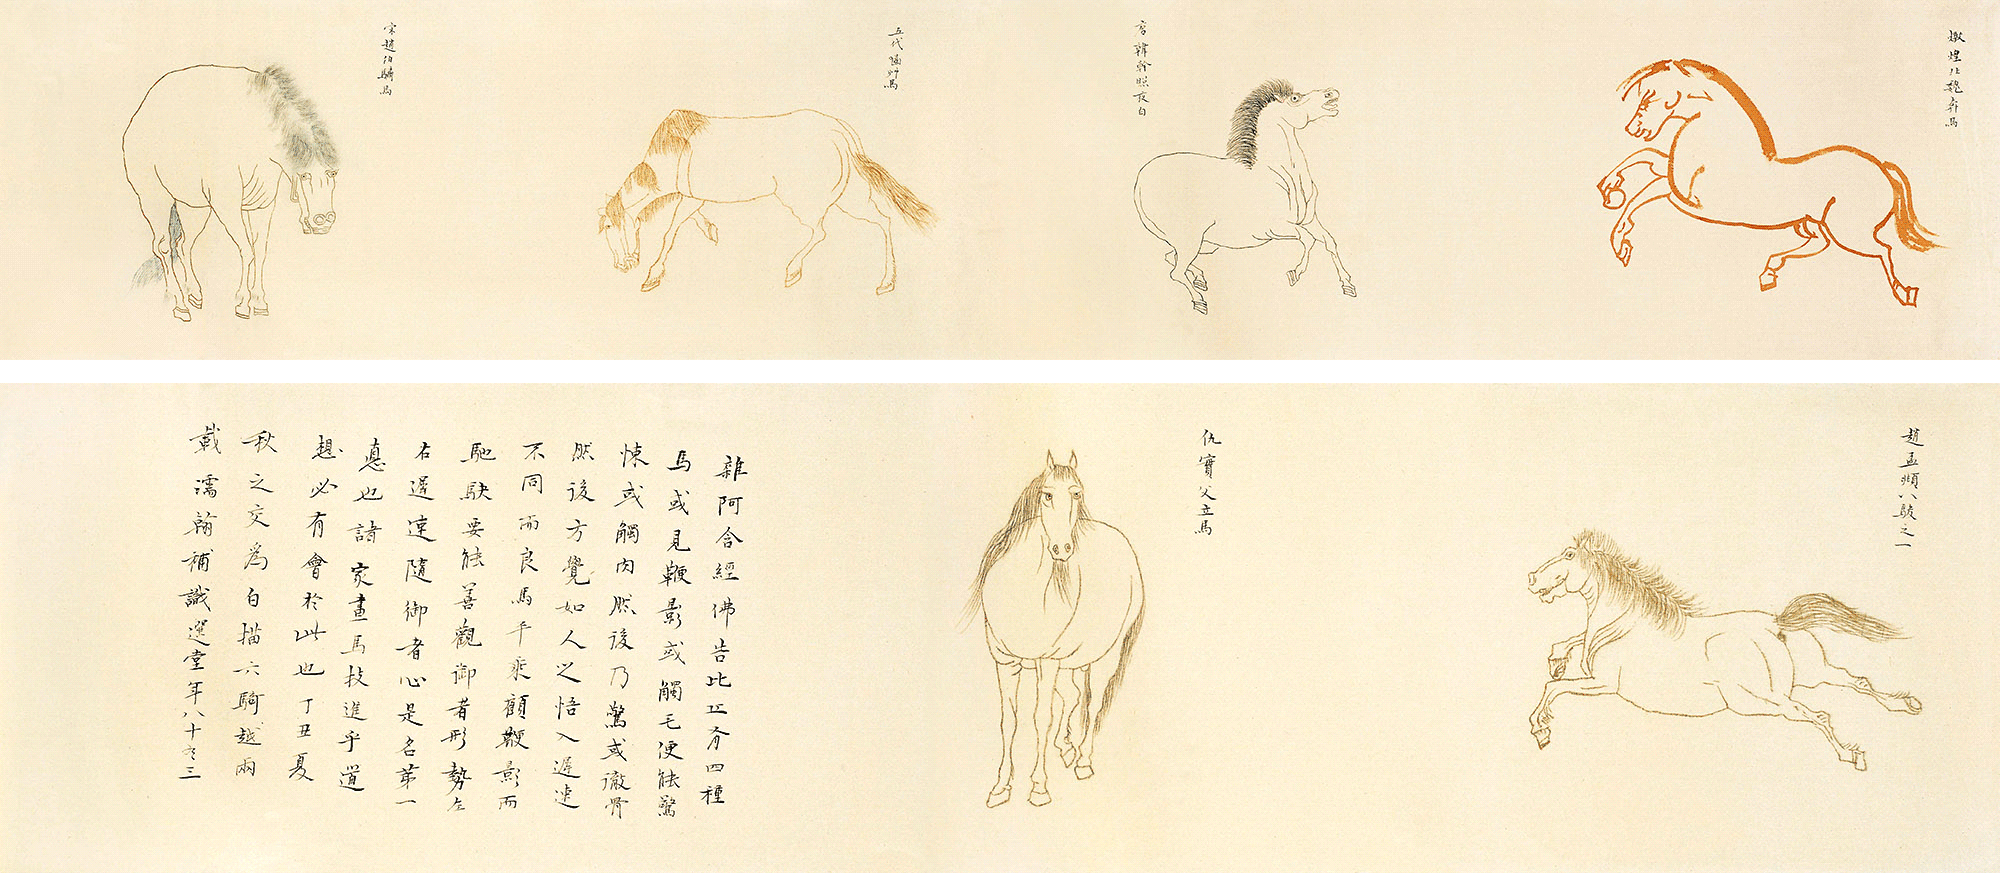 燉煌北魏奔馬
唐韓幹照夜白
五代嚙艸馬
宋趙伯驌馬
趙孟頫八駿之一
仇實父立馬
雜阿含經佛告比丘有四種
馬或見鞭影或觸毛便能驚
悚或觸肉然後乃驚或徹骨
然後方覺如人之悟入遲速
不同而良馬平乘顧鞭影而
馳駃要能善觀御者形勢左
右遲速隨御者心是名第一
悳也諸家畫馬技進乎道
想必有會於此也丁丑夏
秋之交為白描六騎越兩
載濡翰補識選堂年八十又三